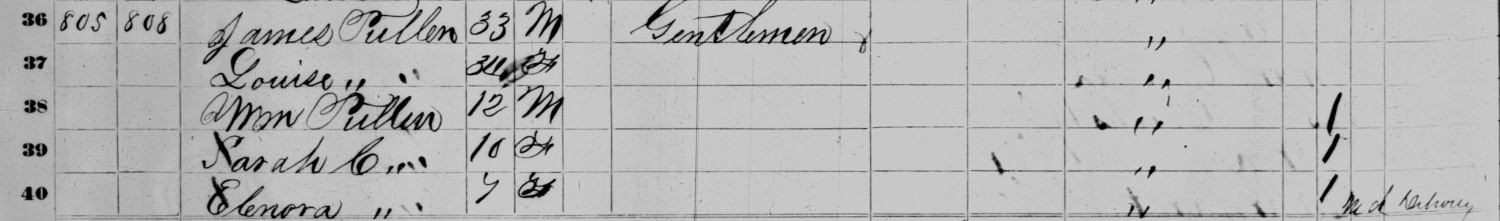 36 805 808 James Pullen 33 M Gentlemen "
37 Louise " " 34 F "
38 Wm Pullen 12 M " 1
39 Sarah C " " 10 F " 1
40 Elenora " " 7 F " 1